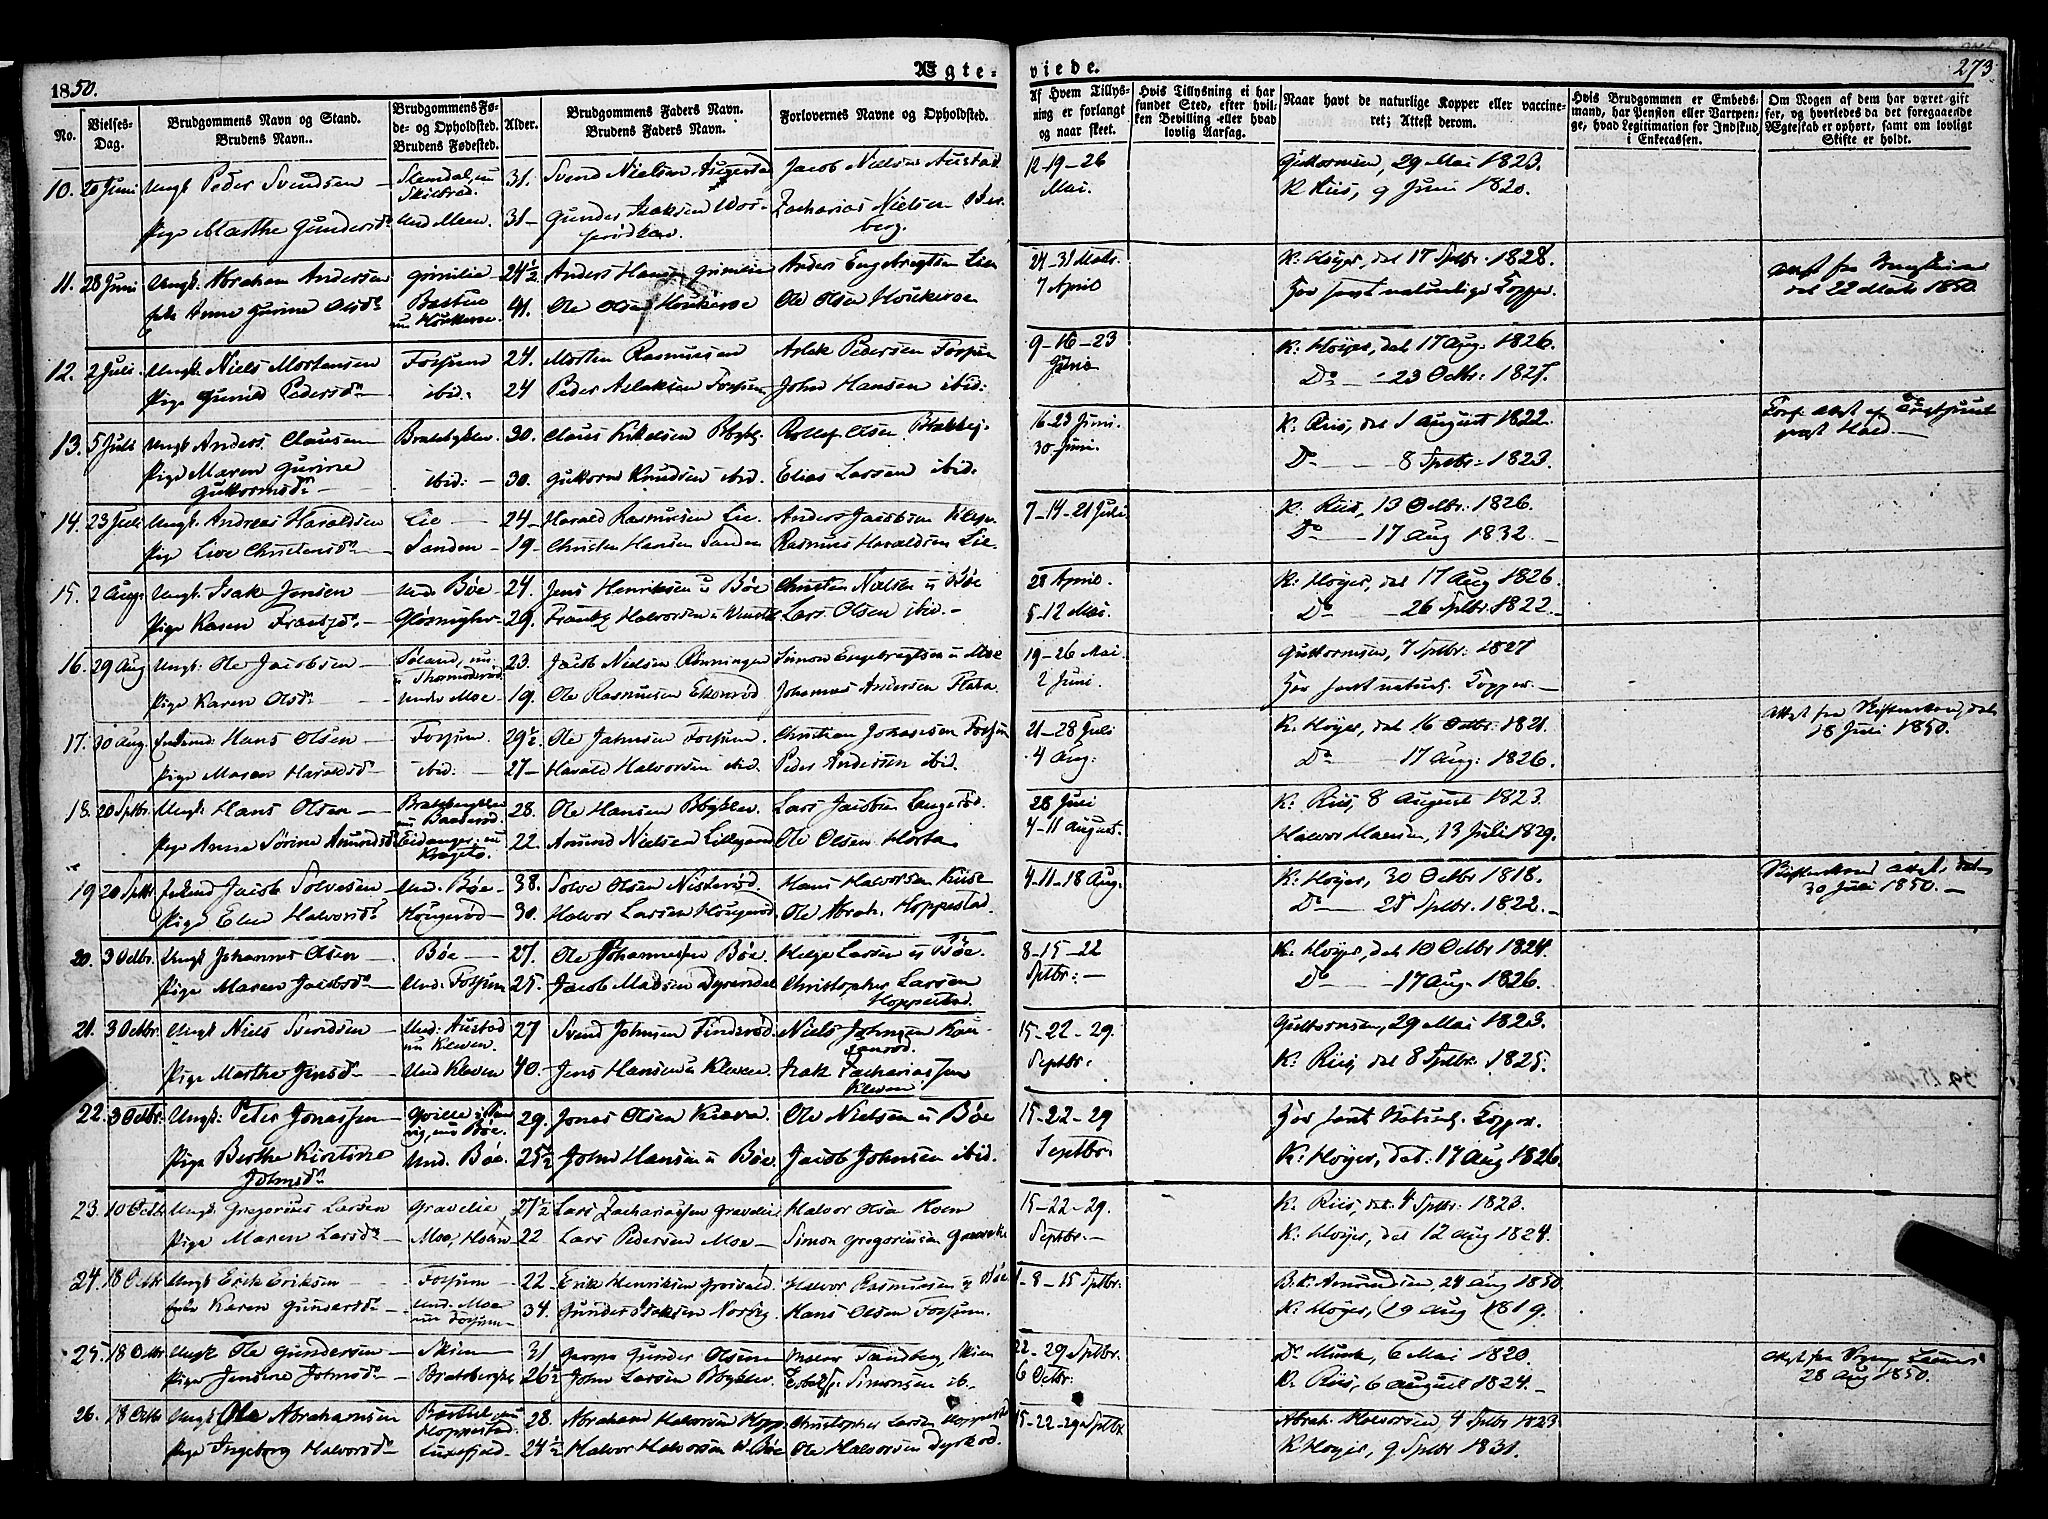 1850.
Ægte-
viede.
273.
No.
Vielses-Dag.
Brudgommens Navn og Stand. Brudens Navn.
Brudgommens Fø-de- og Opholdsted. Brudens Fødested.
Alder.
Brudgommens Faders Navn. Brudens Faders Navn.
Forlovernes Navne og Opholdsted.
Af Hvem Tillys-ning er forlangt og naar skeet.
Hvis Tillysning ei har fundet Sted, efter hvil-ken Bevilling eller hvad lovlig Aarsag.
Naar havt de naturlige Kopper eller vaccine-ret; Attest derom.
Hvis Brudgommen er Embeds-mand, har Pension eller Vartpen-ge, hvad Legitimation for Indskud i Enkecassen.
Om Nogen af dem har været gift før, og hvorledes da det foregaaende Ægteskab er ophørt, samt om lovligt Skifte er holdt.
10. 20 Juni Ungk. Peder Svendsen 31. Svend Nielsen Jacob Nielsen Austad 12-19-26 Mai. Guttormsen, 29 Mai 1823.
Pige Marthe Gundersd. 31 Gunder Isaksen Zacharias Nielsen K. Riis, 9 Juni 1820.
11. 28 Juni Ungk. Abraham Andersen 24½. Anders Hansen Anders Engebregtsen Lie 24-31 Marts. 7 April K. Høyer, dat 17 Sptbr. 1828. Attest fra dat 22 Marts 1850.
Anne Gurine Olsd. 41. Ole Olsen Ole Olsen Har havt naturlige Kopper.
12. 2 Juli. Ungk. Niels Mortensen Fossum 24. Morten Rasmussen Aslak Pedersen Fossum 9-16-23 Junio K. Høyer, dat 17 Aug. 1826.
Pige Gunild Pedersd. ibid. 24 Peder Aslaksen Fossum John Hansen ibid. Do 23 Octbr. 1827.
13. 5 Juli Ungk. Anders Clausen Bratsbergklev. 30. Claus Rollef Olsen 16-23 Juni. 30 Juni. K. Riis, dat 1 August 1822.
Pige Maren Gurine Guttormsd. ibid. 30. Guttorm Knudsen ibid. Elias Larsen ibid. Do 8 Sptbr. 1823.
14. 23 Juli Ungk. Andreas Haraldsen Lie 24 Harald Rasmusen Lie. Anders Jacobsen 7-14-21 Juli. K. Riis, 13 Octbr. 1826.
Pige Live Christensd. Sanden 19 Christen Hansen Sanden Rasmus Haraldsen Lie. Do 17 Aug 1832.
15. 2 Aug. Ungk. Isak Jensen Und. Bøe 24. Jens Henriksen u Bøe Christen Nielsen u Bøe 28 April. 5-12 Mai. K. Høyer, dat 17 Aug 1826.
Pige Karen 29. Halvorsen Lars Olsen ibid. Do 26 Sptbr. 1822.
16. 29 Aug Ungk. Ole Jacobsen 23. Jacob Nielsen Rønningen Simon Engebregtsen u Moe 19-26 Mai. 2 Juni. Guttormsen, 7 Sptbr. 1827
Pige Karen Olsd. under Moe 19. Ole Rasmusen Johannes Andersen Har havt naturl. Kopper.
17. 30 Aug. Enkemd. Hans Olsen Fossum. 29½. Ole Jahnsen Fossum. Christian Johansen Fossum 21-28 Juli 4 Aug. K. Høyer, dat 16 Octbr. 1821. Attest fra Skifteretten, dat 18 Juli 1850.
Pige Maren Haraldsd. ibid. 27 Harald Halvorsen ibid. Peder Andersen ibid. Do 17 Aug. 1826.
18. 20 Sptbr. Ungk. Hans Olsen 28. Ole Hansen Lars Jacobsen Langerød. 28 Juli 4-11 August. K. Riis, 8 August 1823.
Pige Anne Sørine Amundsd. Eidanger, nu Kragerø. 22. Amund Nielsen Lillegaard Ole Olsen Halvor Hansen, 13 Juli 1829.
19 20 Sptbr. Enkemd. Jacob Solvesen Und. Bøe 38. Solve Olsen Nisterød. Hans Halvorsen Kiise 4-11-18 Aug. K. Høyer, 30 Octbr 1818. 30 Juli 1850.
Pige Elen Halvorsd. Hougerød 30. Halvor Larsen Hougerød. Ole Abrah. Hoppestad. Do 25 Sptbr. 1822.
20. 3 Octbr. Ungk. Johannes Olsen Bøe 27. Ole Johannessen Bøe. Helge Larsen u Bøe. 8-15-22 Sptbr. K. Høyer, dat 10 Octbr 1824.
Pige Maren Jacobsd. Und. Fossum 25. Jacob Madsen Dyrendal Christopher Larsen Hoppestad. Do 17 Aug. 1826.
21. 3 Octbr. Ungk. Niels Svendsen Und. Austad nu Kleven. 27 Svend Johnsen Finderød. Niels Johnsen 15-22-29. Septbr. Guttormsen, 29 Mai 1823.
Pige Marthe Jensd. Und Kleven 40. Jens Hansen u Kleven. Isak Zachariassen Kleven. K. Riis, dat 8 Sptbr. 1825.
22. 3 Octbr. Ungk. Peter Jonassen nu Bøe. 29. Jonas Olsen Ole Nielsen u Bøe 15-22-29 Septbr. Har havt Naturl. Kopper.
Pige Berthe Kirstine Johnsd. Und. Bøe. 25½ John Hansen u Bøe. Jacob Johnsen ibid. K. Høyer, dat. 17 Aug 1826.
23. 10 Octbr Ungk. Gregorius Larsen Gravelie 27½ Lars Zachariassen Gravelie Halvor Olsen Hoen 15-22-29. Septbr. K. Riis, dat. 4 Sptbr. 1823.
Pige Maren Larsd. Moe, Hoen 22 Lars Pedersen Moe Simon Gregoriusen K. Høyer, dat 12 Aug 1824.
24. 18 Octbr Ungk. Erik Eriksen Fossum 22 Erik Henriksen Halvor Rasmusen u Bøe 1-8-15 Sptbr. B. K. Amundsen, 24 Aug 1850.
Karen Gundersd. Und. Moe nu Fossum 34. Gunder Isaksen Hans Olsen Fossum. K. Høyer, 19 Aug 1819.
25. 18 Octbr Ungk. Ole Gundersen Skien 31 Gunder Olsen Sandberg, Skien 22-29 Sptbr. 6 Octbr. Dr Munk, 6 Mai 1820. 28 Aug 1850.
Pige Jensine Johnsd. 26½ John Larsen Simonsen ib. K. Riis, 6 August 1824.
26. 18 Octbr Ungk. Ole Abrahamsen Hoppestad. 28. Abraham Halvorsen Hopp. Christopher Larsen Hoppestad 15-22-29 Sptbr. Abrah. Halvorsen, 4 Sptbr 1823
Pige Ingeborg Halvorsd. Luxefjeld 24½ Halvor Halvorsen u. Bøe Ole Halvorsen K. Høyer, 9 Sptbr 1831.